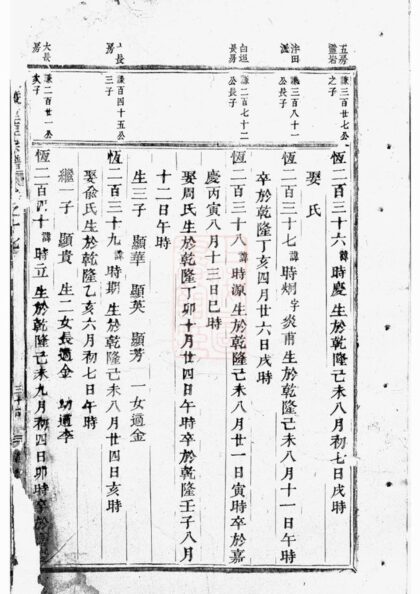 五房
靈岩
謙三百廿七公
之子
恆二百三十六諱時慶生於乾隆己未八月初七日戌時
娶氏
沖田
派
謙三百八十一
公長子
恆二百三十七諱時炯字炎甫生於乾隆己未八月十一日午時
卒於乾隆丁亥四月廿六日戌時
白垣
長房
謙二百七十二
公長子
恆二百三十八諱時源生於乾隆己未八月廿一日寅時卒於嘉
慶丙寅八月十三日巳時
娶周氏生於乾隆丁卯十月廿四日午時卒於乾隆壬子八月
十二日午時
生三子 顯華 顯英 顯芳 一女適金
長
房
謙百四十五公
三子
恆二百三十九諱時期生於乾隆己未八月廿四日亥時
娶兪氏生於乾隆乙亥六月初七日午時
繼子 顯貴 生二女長適金 幼適李
大長
房
謙二百廿一公
子
恆二百四十諱時立生於乾隆己未九月初四日卯時卒於